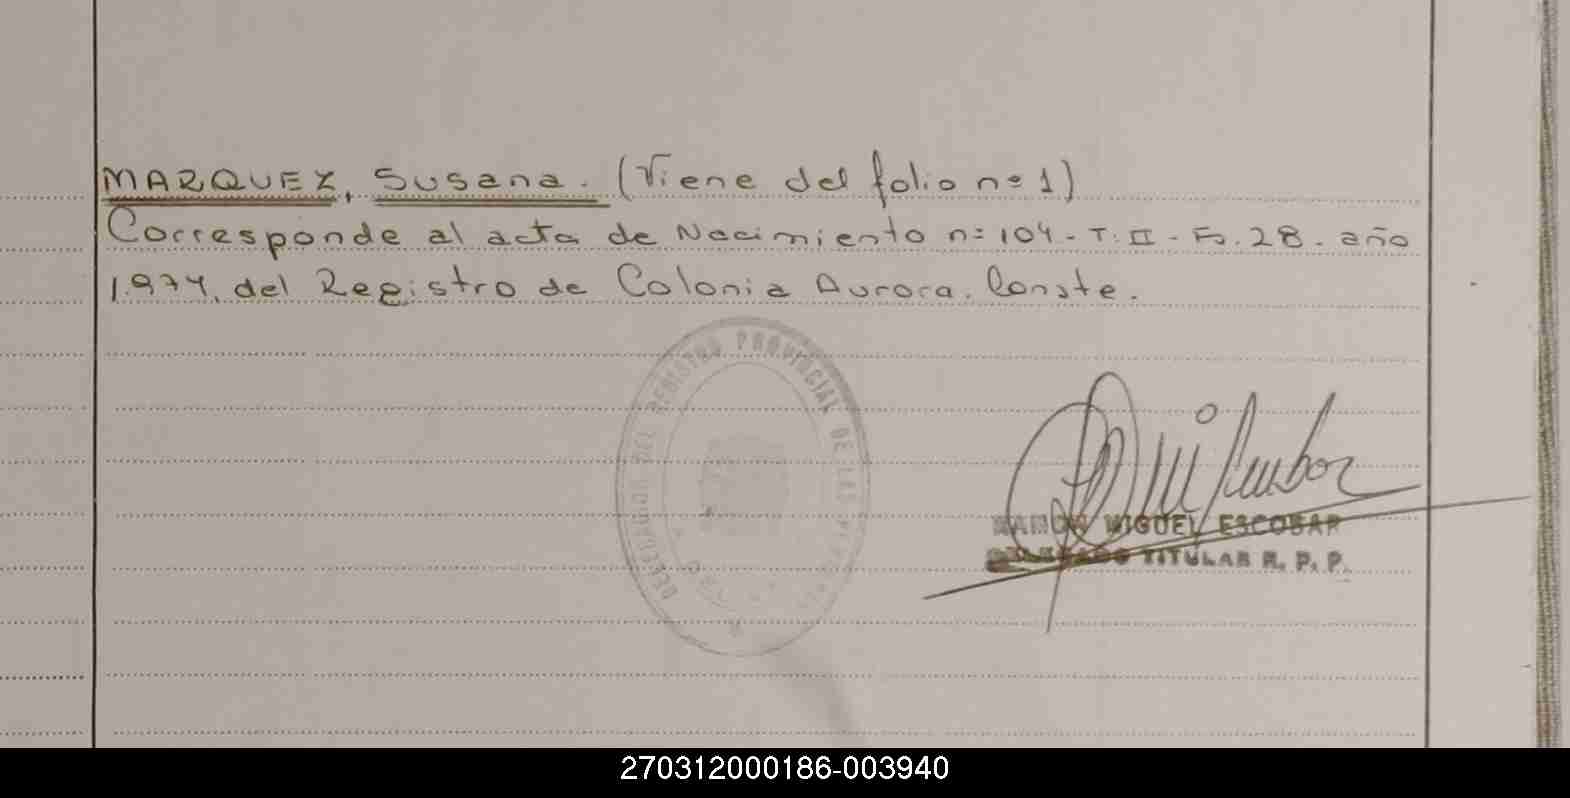 MARQUEZ, Susana. (Viene del folio nº 1)
Corresponde al acta de Nacimiento nº 104 - T. II - Fº. 28 - año
1.974, del Registro de Colonia Aurora. Conste.
DELEGACION DEL REGISTRO PROVINCIAL DE LAS
RAMON MIGUEL ESCOBAR
DELEGADO TITULAR R. P. P.
270312000186-003940